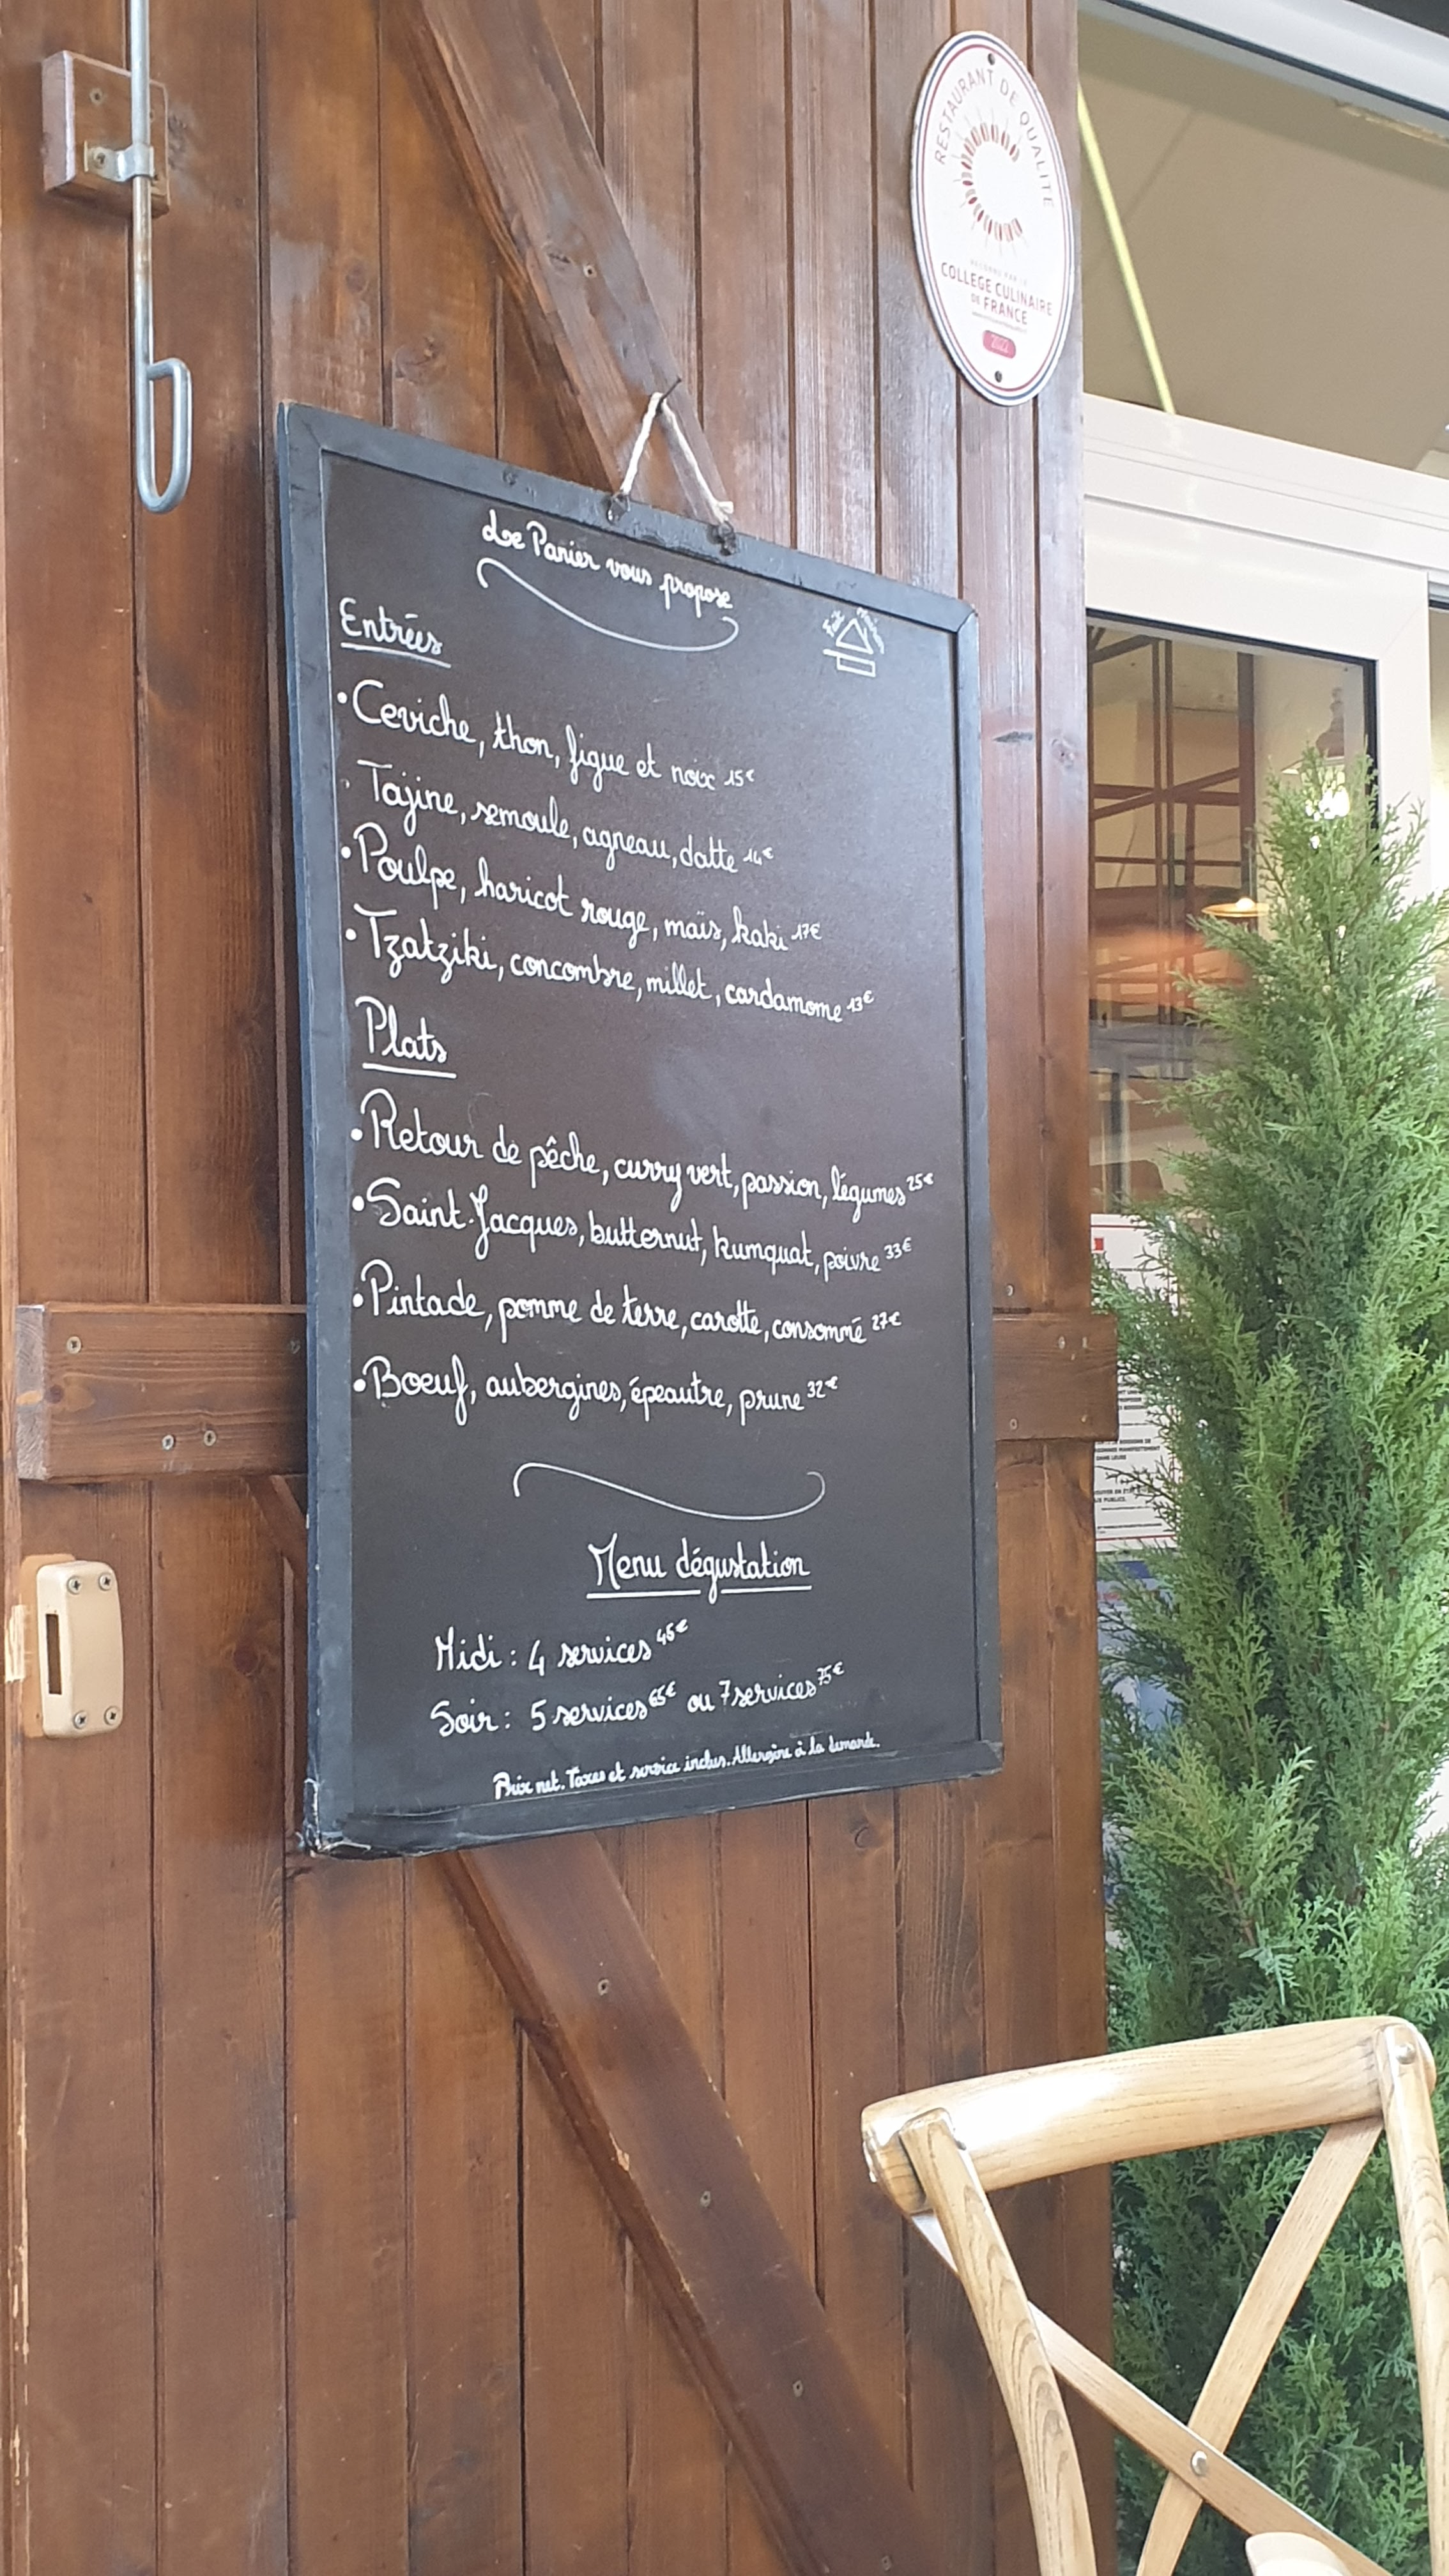 RESTAURANT DE QUALITÉ
RECONNU PAR LE
COLLEGE CULINAIRE
DE FRANCE
2022
Le Panier vous propose
Fait Maison
Entrées
•Ceviche, thon, figue et noix 15€
Tajine, semoule, agneau, datte 14€
•Poulpe, haricot rouge, maïs, kaki 17€
•Tzatziki, concombre, millet, cardamome 13€
Plats
•Retour de pêche, curry vert, passion, légumes 25€
•Saint-Jacques, butternut, kumquat, poivre 33€
•Pintade, pomme de terre, carotte, consommé 27€
•Boeuf, aubergines, épeautre, prune 32€
Menu dégustation
Midi : 4 services 45€
Soir : 5 services 65€ ou 7 services 75€
Prix net. Taxes et service inclus. Allergène à la demande.